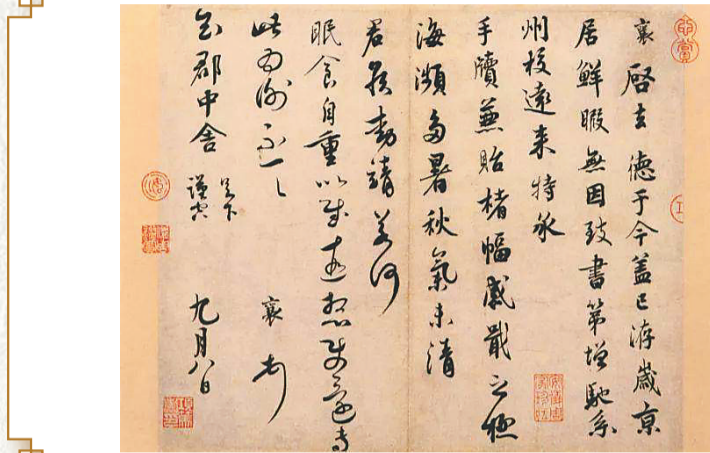 襄啓去德于今蓋已洊歲京
居鮮暇無因致書第增馳系
州校遠來特承
手牘兼貽楮幅感戢之極
海瀕多暑秋氣未清
君侯動靜若何
眠食自重以
此為謝不一一 襄
郡中舍 足下
謹空 九月八日